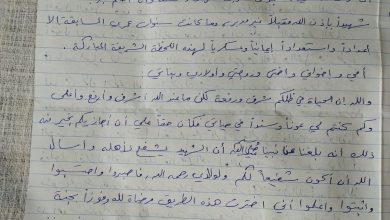 شهيداً بإذن الله مقبلاً غير مدبر وما كانت سنون عمري السابقة إلا
إعداداً واستعداداً إيمانياً وعسكرياً لهذه اللحظة الشريفة المباركة.
أمي وإخواني وأختي وزوجتي وأولادي وبناتي
والله إن الحياة في ظلكم شرف ورفعة لكن ما عند الله أشرف وأرفع وأعلى
وكم كنتم لي عوناً وسنداً في حياتي فكان حقاً علي أن أجازيكم بخير منه
ذلك أنه بلغنا عن نبينا أن الشهيد يشفع بأهله وأسأل
الله أن أكون شفيعاً لكم ولوالدي رحمه الله فاصبروا واحتسبوا
واثبتوا واعلموا أني اخترت هذه الطريق مرضاة لله وفوزاً بجنة